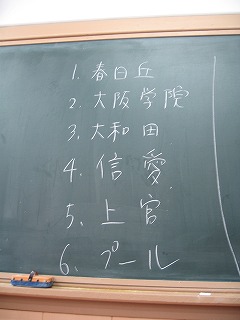 1. 春日丘
2. 大阪学院
3. 大和田
4. 信愛
5. 上宮
6. プール